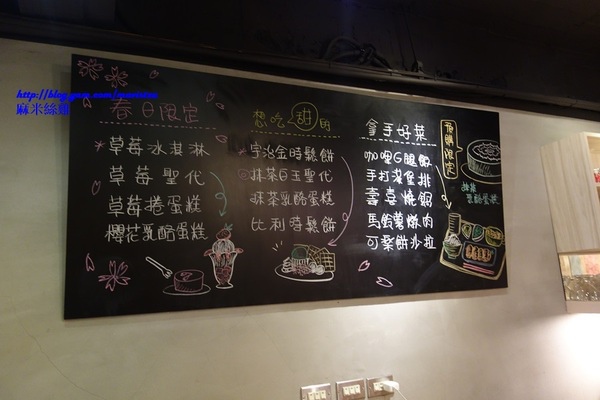 麻米絲雞
春日限定
草莓冰淇淋
草莓聖代
草莓捲蛋糕
櫻花乳酪蛋糕
想吃甜
宇治金時鬆餅
抹茶白玉聖代
抹茶乳酪蛋糕
比利時鬆餅
拿手好菜
咖哩G腿飯
手打漢堡排
壽喜燒鍋
馬鈴薯燉肉
可樂餅沙拉
預購限定
抹茶
乳酪蛋糕